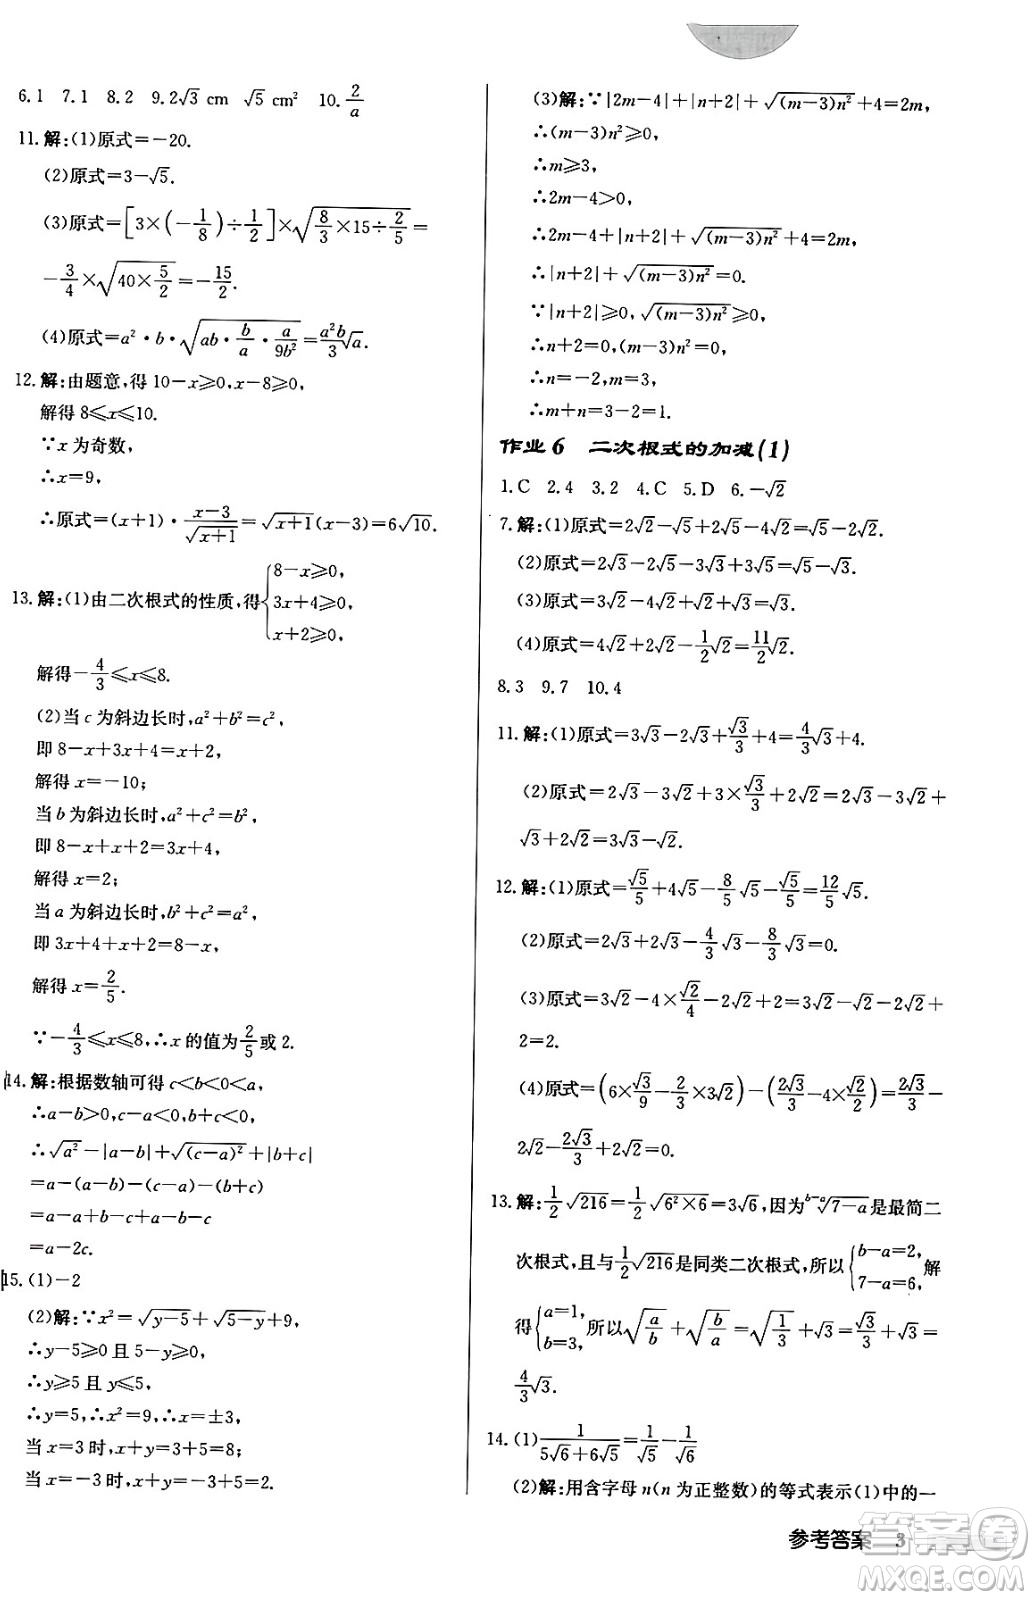 6.1 7.1 8.2 9.2√3 cm √5 cm² 10. 2/a
11.解:(1)原式=-20.
(2)原式=3-√5.
(3)原式=[3×(-1/8)÷1/2]×√(8/3×15÷2/5)=
-3/4×√(40×5/2)=-15/2.
(4)原式=a²·b·√(ab·b/a·a/9b²)=a²b/3√a.
12.解:由题意,得10-x⩾0,x-8⩾0,
解得8⩽x⩽10.
∵x为奇数,
∴x=9,
∴原式=(x+1)·(x-3)/√(x+1)=√(x+1)(x-3)=6√10.
13.解:(1)由二次根式的性质,得{8-x⩾0, 3x+4⩾0, x+2⩾0,
解得-4/3⩽x⩽8.
(2)当c为斜边长时,a²+b²=c²,
即8-x+3x+4=x+2,
解得x=-10;
当b为斜边长时,a²+c²=b²,
即8-x+x+2=3x+4,
解得x=2;
当a为斜边长时,b²+c²=a²,
即3x+4+x+2=8-x,
解得x=2/5.
∵-4/3⩽x⩽8,∴x的值为2/5或2.
14.解:根据数轴可得c<b<0<a,
∴a-b>0,c-a<0,b+c<0,
∴√a²-|a-b|+√(c-a)²+|b+c|
=a-(a-b)-(c-a)-(b+c)
=a-a+b-c+a-b-c
=a-2c.
15.(1)-2
(2)解:∵x²=√(y-5)+√(5-y)+9,
∴y-5⩾0且5-y⩾0,
∴y⩾5且y⩽5,
∴y=5,∴x²=9,∴x=±3,
当x=3时,x+y=3+5=8;
当x=-3时,x+y=-3+5=2.
(3)解:∵|2m-4|+|n+2|+√(m-3)n²+4=2m,
∴(m-3)n²⩾0,
∴m⩾3,
∴2m-4>0,
∴2m-4+|n+2|+√(m-3)n²+4=2m,
∴|n+2|+√(m-3)n²=0.
∵|n+2|⩾0,√(m-3)n²⩾0,
∴n+2=0,(m-3)n²=0,
∴n=-2,m=3,
∴m+n=3-2=1.
作业6 二次根式的加减(1)
1.C 2.4 3.2 4.C 5.D 6.-√2
7.解:(1)原式=2√2-√5+2√5-4√2=√5-2√2.
(2)原式=2√3-2√5-3√3+3√5=√5-√3.
(3)原式=3√2-4√3-2√2+5√3=√2+√3.
(4)原式=4√2+2√2-1/2√2=11/2√2.
8.3 9.7 10.4
11.解:(1)原式=3√3-2√3+√3/3+4=4/3√3+4.
(2)原式=2√3-3√2+3×√3/3+2√2=2√3-3√2+
√3+2√2=3√3-√2.
12.解:(1)原式=√5/5+4√5-8/5√5-√5/5=12/5√5.
(2)原式=2√3+2√3-4/3√3-8/3√3=0.
(3)原式=3√2-4×√2/4-2√2+2=3√2-√2-2√2+
2=2.
(4)原式=(6×√3/9-2√3/3+3√2)-(2√3/3-4×√2/2)=
2√2-2√3/3+2√2=0.
13.解:1/2√216=1/2√(6²×6)=3√6,因为ᵇ⁻ᵃ√(7-a)是最简二
次根式,且与1/2√216是同类二次根式,所以{b-a=2, 7-a=6,解
得{a=1, b=3,所以√(a/b)+√(b/a)=√(1/3)+√3=√3/3+√3=
4/3√3.
14.(1)1/(5√6+6√5)=1/√5-1/√6
(2)解:用含字母n(n为正整数)的等式表示(1)中的一
参考答案 3
答案圈
MXQE.COM